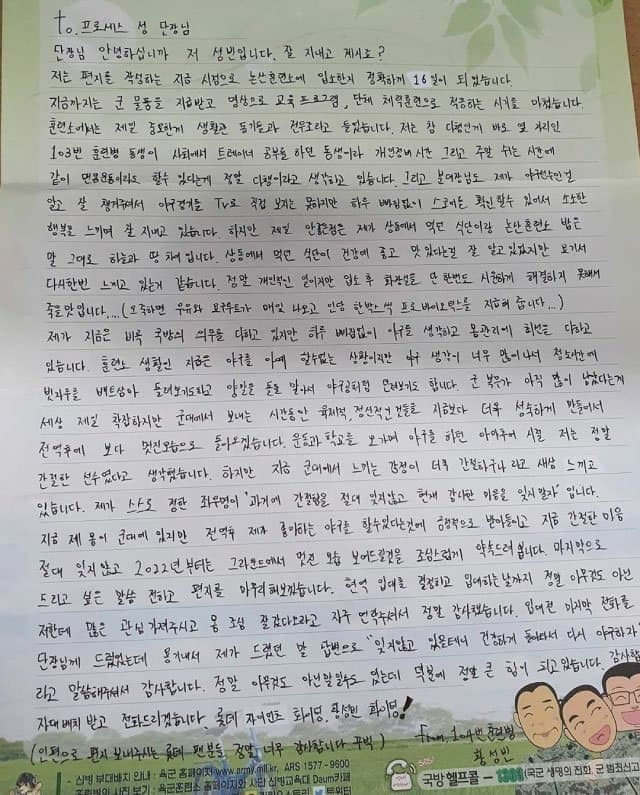 to. 프로세스 성 단장님
단장님 안녕하십니까 저 성빈입니다. 잘 지내고 계시죠?
저는 편지를 작성하는 지금 시점으로 논산훈련소에 입소한지 정확하게 16일이 되었습니다.
지금까지는 군 물품을 지급받고 영상으로 교육 프로그램, 단체 체력훈련으로 적응하는 시기를 마쳤습니다.
훈련소에서는 제일 중요한게 생활관 동기들과 전우조라고 들었습니다. 저는 참 다행인게 바로 옆 자리인
103번 훈련병 동생이 사회에서 트레이너 공부를 하던 동생이라 개인정비시간 그리고 주말 쉬는 시간에
같이 맨몸운동이라도 할수 있다는게 정말 다행이라고 생각하고 있습니다. 그리고 분대장님도 제가 야구선수인걸
알고 잘 챙겨주셔서 야구경기를 TV로 직접 보지는 못하지만 하루 빠짐없이 스코어를 확인할수 있어서 소소한
행복을 느끼며 잘 지내고 있습니다. 하지만 제일 안좋은점은 제가 상동에서 먹던 식단이랑 논산훈련소 밥은
말 그대로 하늘과 땅 차이입니다. 상동에서 먹던 식단이 건강에 좋고 맛있다는걸 잘 알고있었지만 여기서
다시한번 느끼고 있는거 같습니다. 정말 개인적인 일이지만 입소 후 화장실을 단 한번도 시원하게 해결하지 못해서
죽을맛입니다.... (오죽하면 우유와 요구르트가 매일 나오고 인당 한박스씩 프로바이오틱스를 지급해 줍니다...)
제가 지금은 비록 국방의 의무를 다하고 있지만 하루 빠짐없이 야구를 생각하고 몸관리에 최선을 다하고
있습니다. 훈련소 생활인 지금은 야구를 아예 할수없는 상황이지만 야구 생각이 너무 많이나서 청소시간에
빗자루를 배트삼아 돌려보기도하고 양말을 돌돌 말아서 야구공처럼 던져보기도 합니다. 군 복무가 아직 많이 남았다는게
세상 제일 막막하지만 군대에서 보내는 시간동안 육체적, 정신적인것들로 지금보다 더욱 성숙하게 만들어서
전역후에 보다 멋진모습으로 돌아오겠습니다. 운동과 학교를 오가며 야구를 하던 아마추어 시절 저는 정말
간절한 선수였다고 생각했습니다. 하지만 지금 군대에서 느끼는 감정이 더욱 간절하구나 라고 새삼 느끼고
있습니다. 제가 스스로 정한 좌우명이 '과거에 간절함을 절대 잊지않고 현재 감사한 마음을 잊지말자' 입니다.
지금 제 몸이 군대에 있지만 전역후 제가 좋아하는 야구를 할수있다는것에 긍정적으로 받아들이고 지금 간절한 마음
절대 잊지않고 2022년부터는 그라운드에서 멋진 모습 보여드릴것을 조심스럽게 약속드려 봅니다. 마지막으로
드리고 싶은 말씀 전하고 편지를 마무리해보겠습니다. 현역 입대를 결정하고 입대하는날까지 정말 아무것도 아닌
저한테 많은 관심 가져주시고 몸 조심 잘갔다오라고 자주 연락주셔서 정말 감사했습니다. 입대전 마지막 전화를
단장님께 드렸었는데 용기내서 제가 드렸던 말 답변으로 "잊지않고 있을테니 건강하게 돌아와서 다시 야구하자"
라고 말씀해주셔서 감사합니다. 정말 아무것도 아닌말일수도 있는데 덕분에 정말 큰 힘이 되고있습니다. 감사합
자대배치 받고 전화드리겠습니다. 롯데 자이언츠 화이팅, 황성빈 화이팅!
(인편으로 편지 보내주시는 롯데 팬분들 정말 너무 감사합니다 꾸벅) From. 104번 훈련병
황성빈
신병 부대배치 안내 : 육군 홈페이지 www.army.mil.kr, ARS 1577-9600
훈련병의 사진 보기 : 육군훈련소 홈페이지와 사단 신병교육대 Daum카페
트위터
SOS!
국방헬프콜 - 1303 (국군 생명의 전화, 군 범죄신고